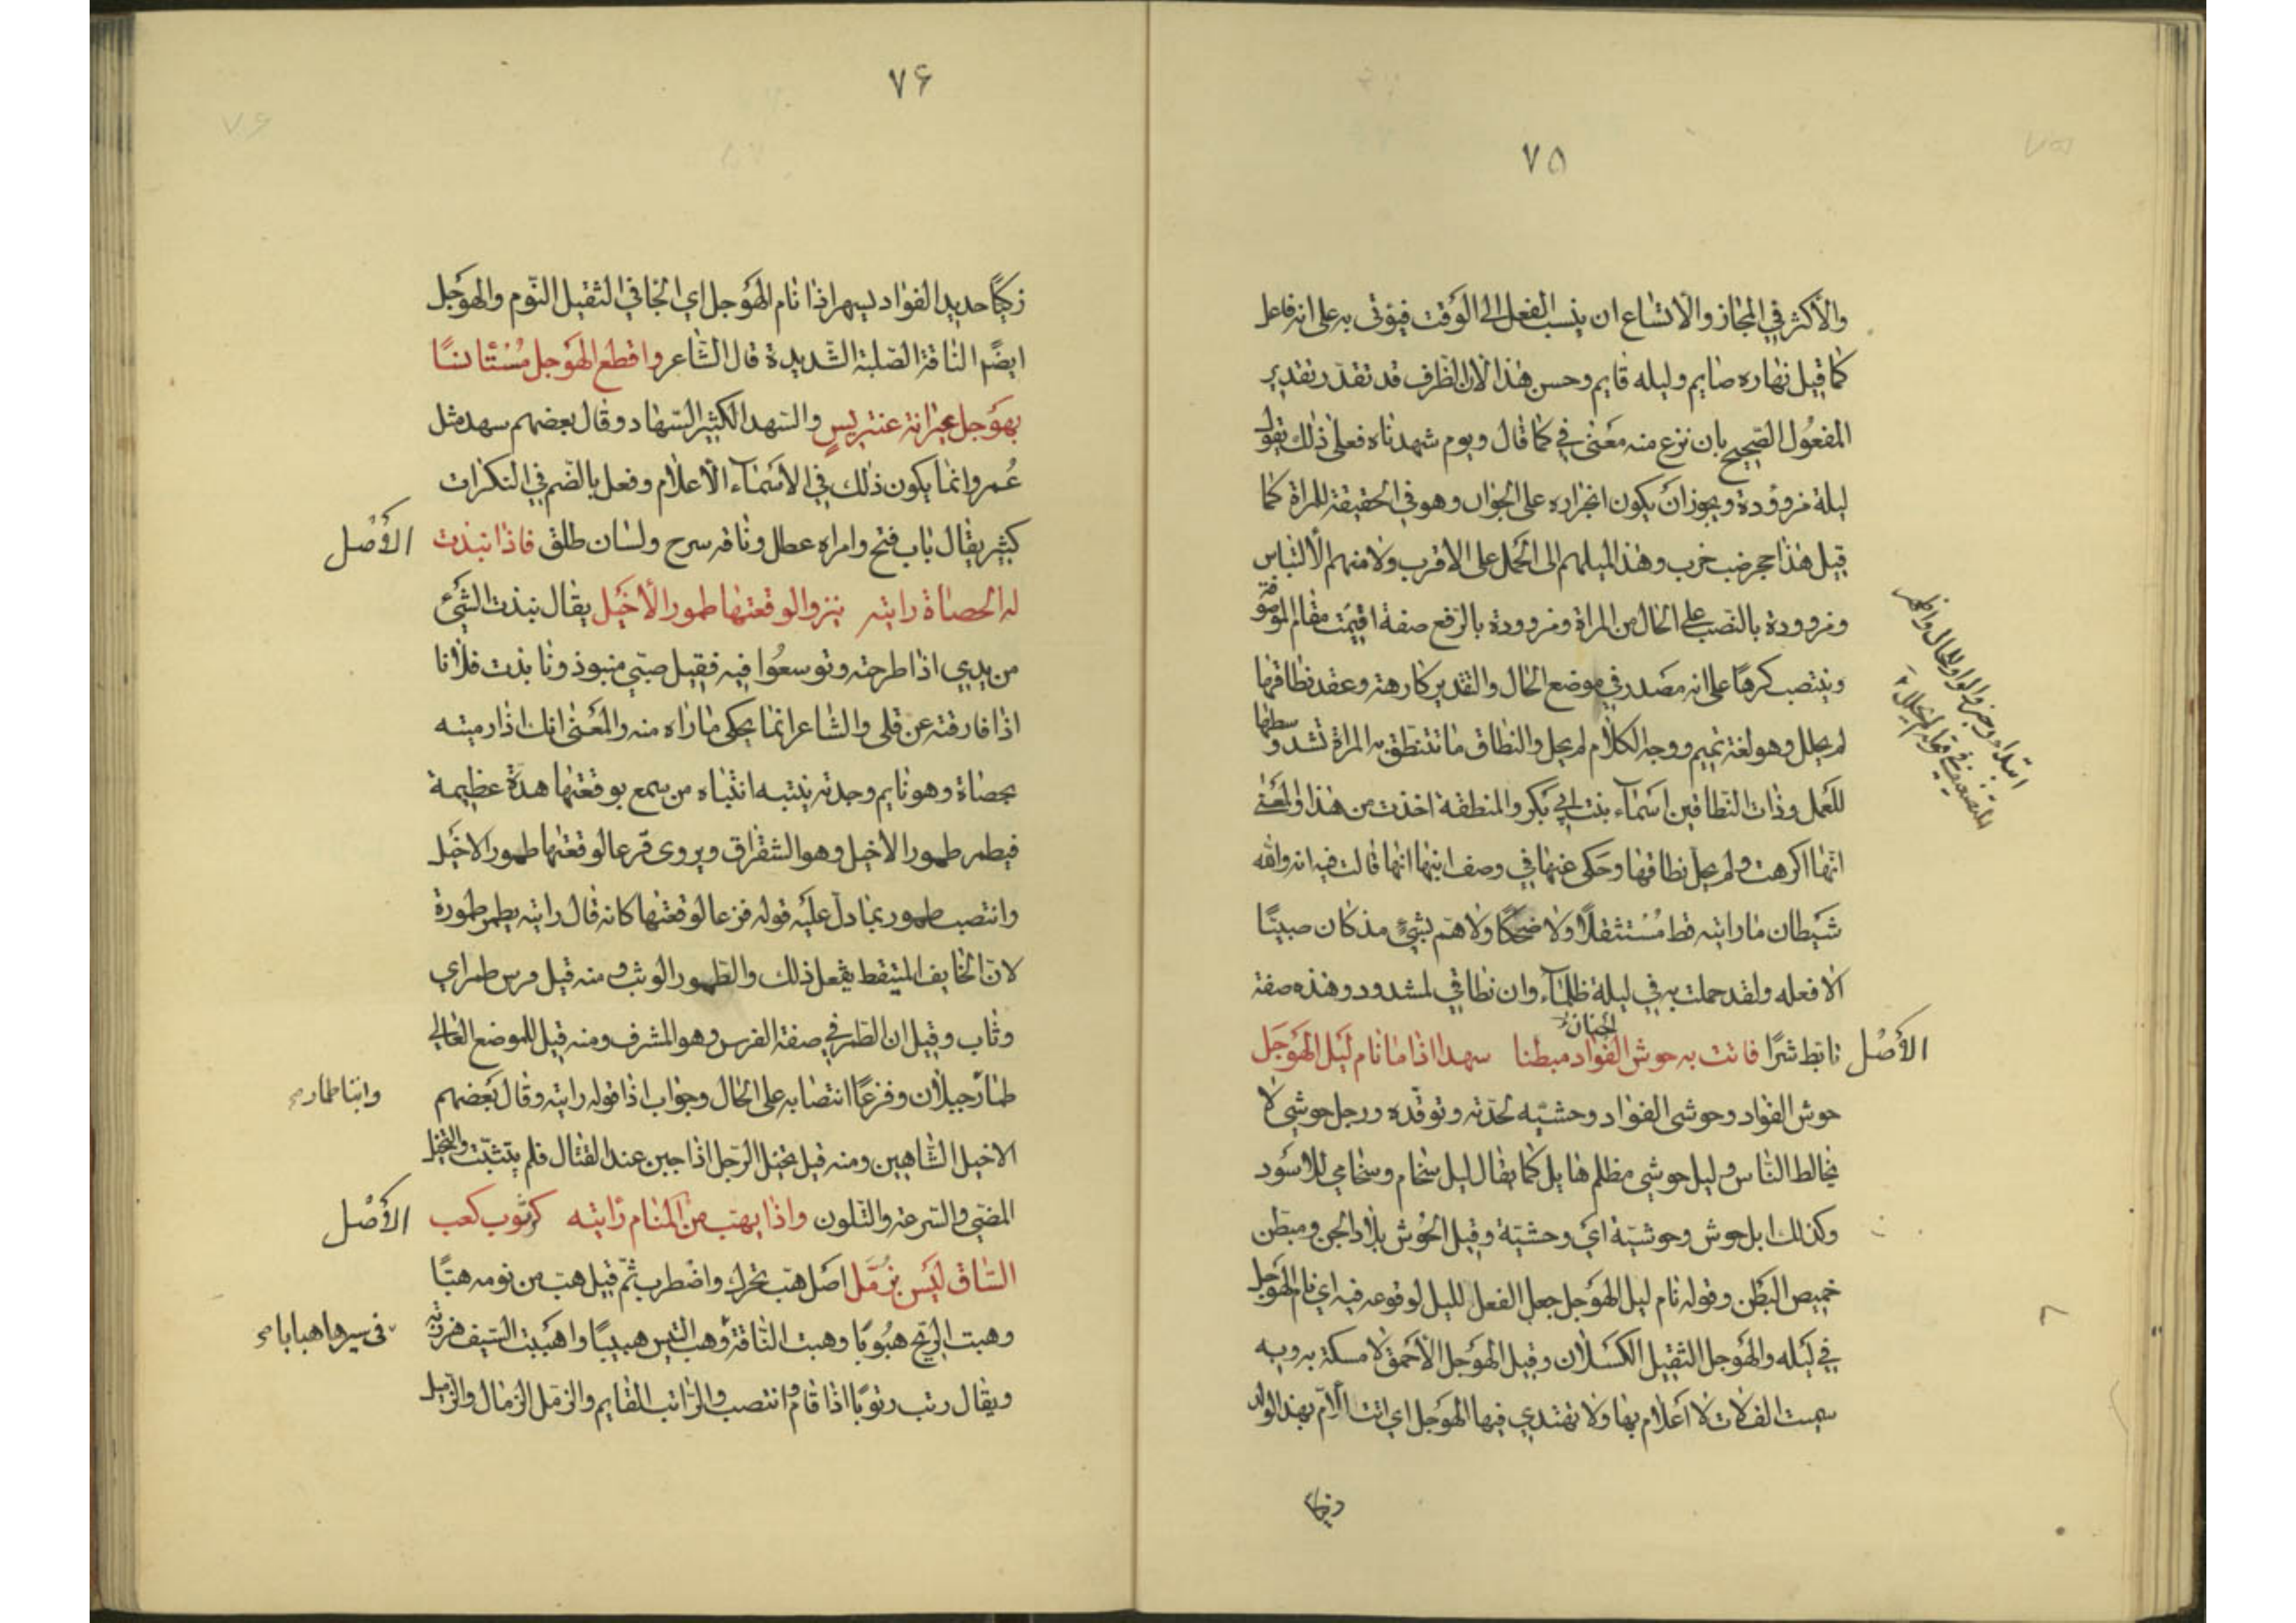 ٧٥
والأكثر في المجاز والاتساع ان ينسب الفعل الى الوقت فيؤتى به على انه فاعل
كما قيل نهاره صايم وليله قايم وحسن هذا لان الظرف قد تقدر تقدير
المفعول الصحيح بان نزع منه معنى في كما قال ويوم شهدناه فعلى ذلك تقول
ليلة مزوؤدة ويجوز ان يكون انجراره على الجوار وهو في الحقيقة للمراة كما
قيل هذا حجر ضب خرب وهذا لميلهم الى الحمل على الاقرب ولامنهم الالتباس
ومزوودة بالنصب على الحال من المراة ومزوودة بالرفع صفة اقيمت مقام الموصوفة
وينتصب كرها على انه مصدر في موضع الحال والتقدير كارهة وعقد نطاقها
لم يحلل وهو لغة تميم ووجه الكلام لم يحل والنطاق ما تنتطق به المراة تشد وسطها
للعمل وذات النطاقين اسماء بنت ابي بكر والمنطقة اخذت من هذا والمعنى
انها اكرهت ولم يحل نطاقها وحكى عنها في وصف ابنها انها قالت فيه انه والله
شيطان ما رايته قط مستثقلا ولا ضحكا ولا هم بشيء مذ كان صبيا
الا فعله ولقد حملت به في ليلة ظلماء وان نطاقي لمشدود وهذه صفة
الأصل
تابط شرا فاتت به حوش الفواد مبطنا سهدا اذا ما نام ليل الهوجل
الجنان
حوش الفواد وحوشى الفواد وحشيه لحدته وتوقده ورجل حوشي لا
يخالط الناس وليل حوشي مظلم هايل كما يقال ليل سخام وسخامي للاسود
وكذلك ابل حوش وحوشية اي وحشية وقيل الحوش بلاد الجن ومبطن
خميص البطن وقوله نام ليل الهوجل جعل الفعل لليل لوقوعه فيه اي نام الهوجل
في ليله والهوجل الثقيل الكسلان وقيل الهوجل الاحمق لا مسكة به وبه
سميت الفلات لا اعلام بها ولا تهتدي فيها الهوجل اي اتت الام بهذا الولد
ذكيا
٧۶
زكيا حديد الفواد يسهر اذا نام الهوجل اي الجافي الثقيل النوم والهوجل
ايضا الناقة الصلبة الشديدة قال الشاعر واقطع الهوجل مستانسا
بهوجل عيرانة عنتريس والسهد الكثير السهاد وقال بعضهم سهد مثل
عمر وانما يكون ذلك في الاسماء الاعلام وفعل بالضم في النكرات
كثير يقال باب فتح وامراه عطل وناقه سرح ولسان طلق فاذا نبذت
الأصل
له الحصاة رايته ينزو لوقعتها طمور الأخيل يقال نبذت الشئ
من يدي اذا طرحته وتوسعوا فيه فقيل صبي منبوذ ونابذت فلانا
اذا فارقته عن قلى والشاعر انما يحكى ما راه منه والمعنى انك اذا رميته
بحصاة وهو نايم وجدته ينتبه انتباه من سمع بوقعتها هدة عظيمة
فيطمر طمور الاخيل وهو الشقراق ويروى فزعا لوقعتها طمور الاخيل
وانتصب طمور بما دل عليه قوله فزعا لوقعتها كانه قال رايته يطمر طموره
لان الخايف المتيقظ يفعل ذلك والطمور الوثب ومنه قيل فرس طمر اي
وثاب وقيل ان الطمر في صفة الفرس وهو المشرف ومنه قيل للموضع العالي
طمار جبلان وفزعا انتصابه على الحال وجواب اذا قوله رايته وقال بعضهم
وابنا طمار صح
الاخيل الشاهين ومنه قيل تخيل الرجل اذا جبن عند القتال فلم يتثبت والتخيل
المضي والسرعة والتلون واذا يهب من المنام رايته كرتوب كعب
الأصل
الساق ليس بزمل اصل هب تحرك واضطرب ثم قيل هب من نومه هبا
وهبت الريح هبوبا وهبت الناقة وهب التيس هبيبا واهببت السيف هززته
فى سيرها هبابا صح
ويقال رتب رتوبا اذا قام وانتصب والراتب القايم والزمل الزمال والزميل